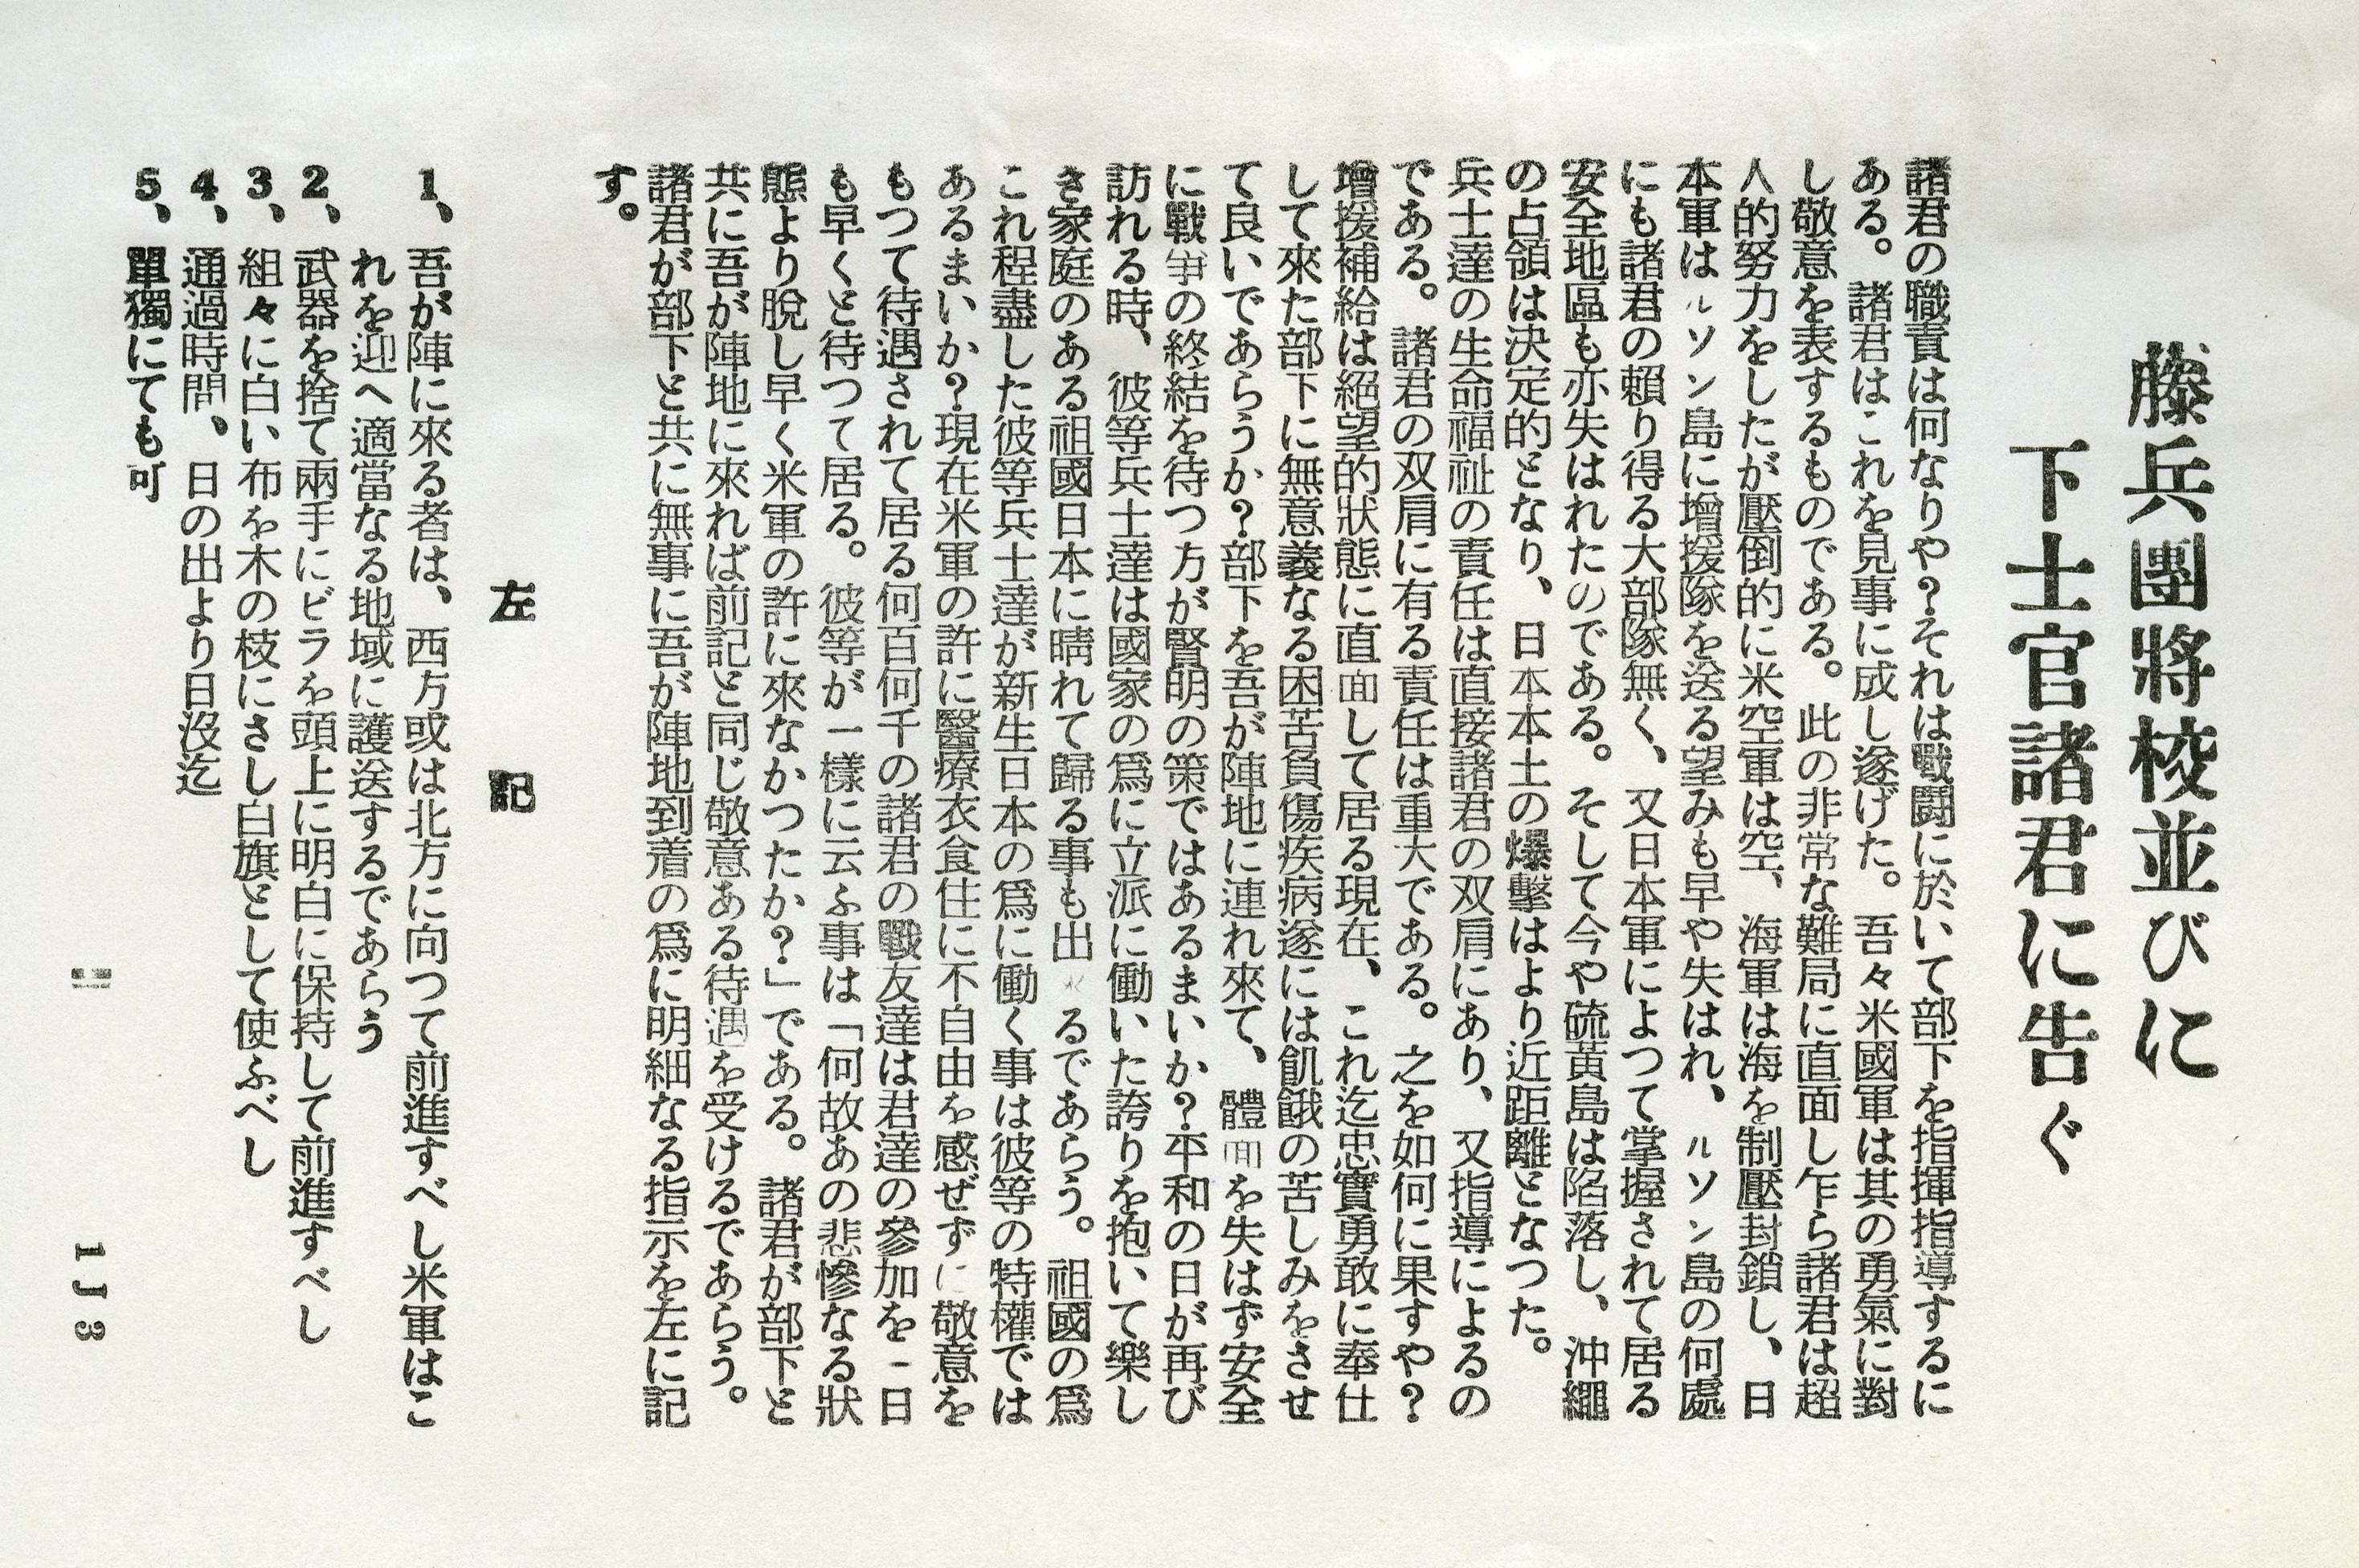 藤兵團將校並びに
下士官諸君に告ぐ
諸君の職責は何なりや?それは戰鬪に於いて部下を指揮指導するに
ある。諸君はこれを見事に成し遂げた。吾々米國軍は其の勇氣に對
し敬意を表するものである。此の非常な難局に直面し乍ら諸君は超
人的努力をしたが壓倒的に米空軍は空、海軍は海を制壓封鎖し、日
本軍はルソン島に增援隊を送る望みも早や失はれ、ルソン島の何處
にも諸君の賴り得る大部隊無く、又日本軍によつて掌握されて居る
安全地區も亦失はれたのである。そして今や硫黃島は陷落し、沖繩
の占領は決定的となり、日本本土の爆擊はより近距離となつた。
兵士達の生命福祉の責任は直接諸君の双肩にあり、又指導によるの
である。諸君の双肩に有る責任は重大である。之を如何に果すや?
增援補給は絕望的狀態に直面して居る現在、これ迄忠實勇敢に奉仕
して來た部下に無意義なる困苦負傷疾病遂には飢餓の苦しみをさせ
て良いであらうか?部下を吾が陣地に連れ來て、體面を失はず安全
に戰爭の終結を待つ方が賢明の策ではあるまいか?平和の日が再び
訪れる時、彼等兵士達は國家の爲に立派に働いた誇りを抱いて樂し
き家庭のある祖國日本に晴れて歸る事も出來るであらう。祖國の爲
これ程盡した彼等兵士達が新生日本の爲に働く事は彼等の特權では
あるまいか?現在米軍の許に醫療衣食住に不自由を感ぜずに敬意を
もつて待遇されて居る何百何千の諸君の戰友達は君達の參加を一日
も早くと待つて居る。彼等が一樣に云ふ事は「何故あの悲慘なる狀
態より脫し早く米軍の許に來なかつたか?」である。諸君が部下と
共に吾が陣地に來れば前記と同じ敬意ある待遇を受けるであらう。
諸君が部下と共に無事に吾が陣地到着の爲に明細なる指示を左に記
す。
左記
1、吾が陣に來る者は、西方或は北方に向つて前進すべし米軍はこ
れを迎へ適當なる地域に護送するであらう
2、武器を捨て兩手にビラを頭上に明白に保持して前進すべし
3、組々に白い布を木の枝にさし白旗として使ふべし
4、通過時間、日の出より日沒迄
5、單獨にても可
1J3